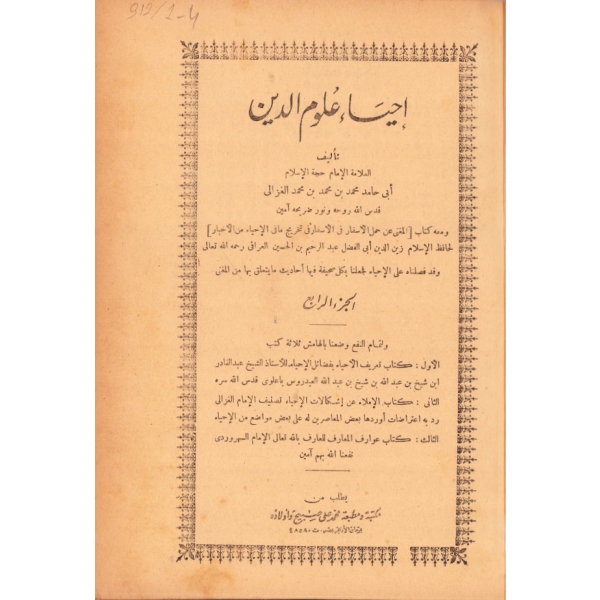 912/1-4
إحياء علوم الدين
تأليف
العلامة الإمام حجة الإسلام
أبى حامد محمد بن محمد بن محمد الغزالى
قدس الله روحه ونور ضريحه آمين
ومعه كتاب [المغنى عن حمل الأسفار فى الأسفار فى تخريج مافى الإحياء من الأخبار]
لحافظ الإسلام زين الدين أبى الفضل عبد الرحيم بن الحسين العراقى رحمه الله تعالى
وقد فصلناه على الإحياء فجعلنا بكل صحيفة فيها أحاديث مايتعلق بها من المغنى
الجزء الرابع
ولتمام النفع وضعنا بالهامش ثلاثة كتب
الأول : كتاب تعريف الأحياء بفضائل الإحياء للأستاذ الشيخ عبد القادر
ابن شيخ بن عبد الله بن شيخ بن عبد الله العيدروس باعلوى قدس الله سره
الثانى : كتاب الإملاء عن إشكالات الإحياء تصنيف الإمام الغزالى
رد به اعتراضات أوردها بعض المعاصرين له على بعض مواضع من الإحياء
الثالث : كتاب عوارف المعارف للعارف بالله تعالى الإمام السهروردى
نفعنا الله بهم آمين
يطلب من
مكتبة ومطبعة محمد على صبيح وأولاده